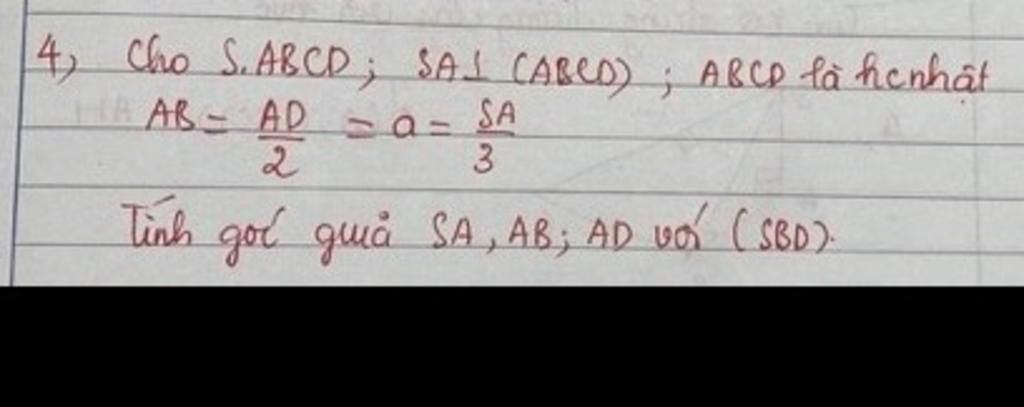 4, Cho S.ABCD; SA⊥ (ABCD) ; ABCD là hcnhật
AB = AD/2 = a = SA/3
Tính góc giữa SA, AB; AD với (SBD).